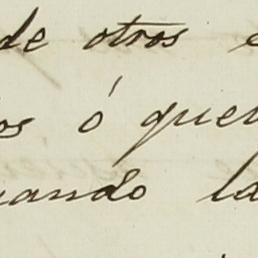 de otros e
os ó quer
uando la